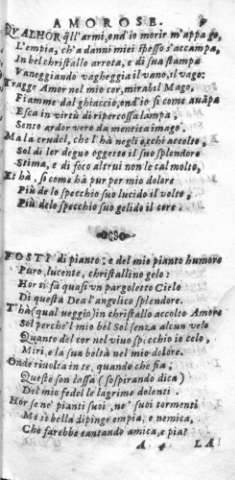 AMOROSE.
QVALHOR q̃ll'armi, ond'io morir m'appago,
L'empia, ch'a danni miei spesso s'accampa,
In bel christallo arrota, e di sua stampa
Vaneggiando vagheggia il vano, il vago:
Tragge Amor nel mio cor, mirabil Mago,
Fiamme dal ghiaccio, ond'io sì come auāpa
Esca in virtù di ripercossa lampa,
Sento ardor vero da mentita imago.
Ma la crudel, che l'hà negli occhi accolto,
Sol di ler degno oggetto il suo splendore
Stima, e di foco altrui non le cal molto,
Et hà, sì come hà pur per mio dolore
Più de lo specchio suo lucido il volto,
Più delo specchio suo gelido il core.
FOSTI di pianto; e del mio pianto humore
Puro, lucente, christallino gelo:
Hor ti fà quasi un pargoletto Cielo
Di questa Dea l'angelico splendore.
T'hà (qual veggio) in christallo accolto Amore
Sol perche'l mio bel Sol senza alcun velo
Quanto del cor nel vivo specchio io celo,
Miri, e la sua beltà nel mio dolore.
Onde rivolta in te, quando che sia;
Queste son lassa (sospirando dica)
Del mio fedel le lagrime dolenti.
Hor se ne' pianti suoi, ne' suoi tormenti
Me sì bella dipinge empia, e nemica,
Che farebbe cantando amica, e pia?
A 4 LA